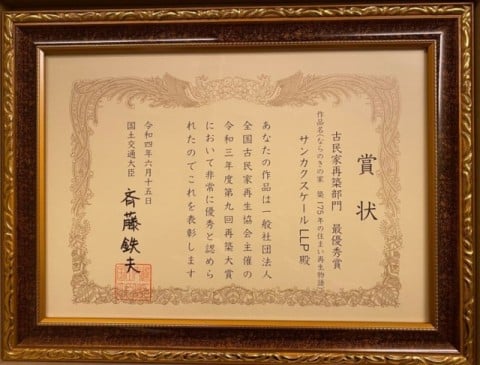 賞状
古民家再築部門 最優秀賞
作品名（ならのきの家 築175年の住まい再生物語）
サンカクスケールLLP 殿
あなたの作品は一般社団法人
全国古民家再生協会主催の
令和三年度第九回再築大賞
において非常に優秀と認めら
れたのでこれを表彰します
令和四年六月十五日
国土交通大臣
斉藤鉄夫